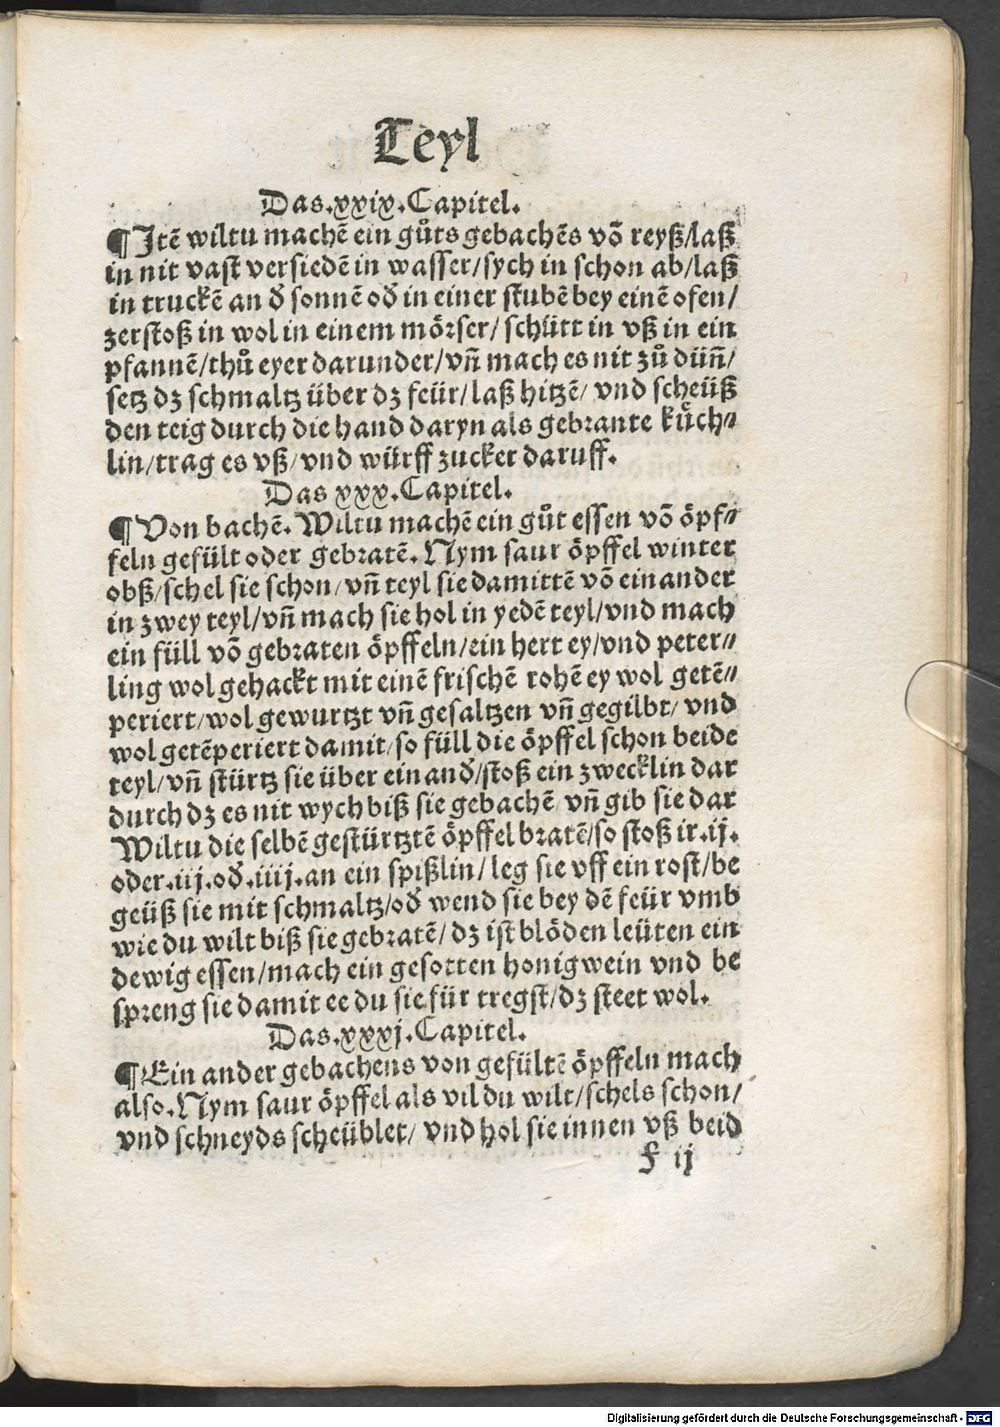 Teyl
Das.xxix.Capitel.
¶Itē wiltu machē ein gůts gebachēs vō reyß/laß
in nit vast versiedē in wasser/sych in schon ab/laß
in truckē an đ sonnē ođ in einer stubē bey einē ofen/
zerstoß in wol in einem mörser/ schütt in vß in ein
pfannē/thů eyer darunder/vñ mach es nit zů düñ/
setz dz schmaltz über dz feür/laß hitzē/ vnd scheüß
den teig durch die hand daryn als gebrante kůch⸗
lin/trag es vß/vnd würff zucker daruff.
Das xxx.Capitel.
¶Von bachē. Wiltu machē ein gůt essen vō öpf⸗
feln gefült oder gebratē. Nym saur öpffel winter
obß/schel sie schon/vñ teyl sie damittē vō einander
in zwey teyl/vñ mach sie hol in yedē teyl/vnd mach
ein füll vō gebraten öpffeln/ein hert ey/vnd peter⸗
ling wol gehackt mit einē frischē rohē ey wol getē⸗
periert/wol gewurtzt vñ gesaltzen vñ gegilbt/ vnd
wol getēperiert damit/so füll die öpffel schon beide
teyl/vñ stürtz sie über einanđ/stoß ein zwecklin dar
durch dz es nit wych biß sie gebachē/vñ gib sie dar
Wiltu die selbē gestürtztē öpffel bratē/so stoß ir.ij.
oder.iij.ođ.iiij.an ein spißlin/ leg sie vff ein rost/be
geüß sie mit schmaltz/ođ wend sie bey dē feür vmb
wie du wilt biß sie gebratē/ dz ist blöden leüten ein
dewig essen/mach ein gesotten honigwein vnd be
spreng sie damit ee du sie für tregst/dz steet wol.
Das.xxxj.Capitel.
¶Ein ander gebachens von gefültē öpffeln mach
also.Nym saur öpffel als vil du wilt/schels schon/
vnd schneyds scheüblet/ vnd hol sie innen vß beid
f ij
Digitalisierung gefördert durch die Deutsche Forschungsgemeinschaft - DFG